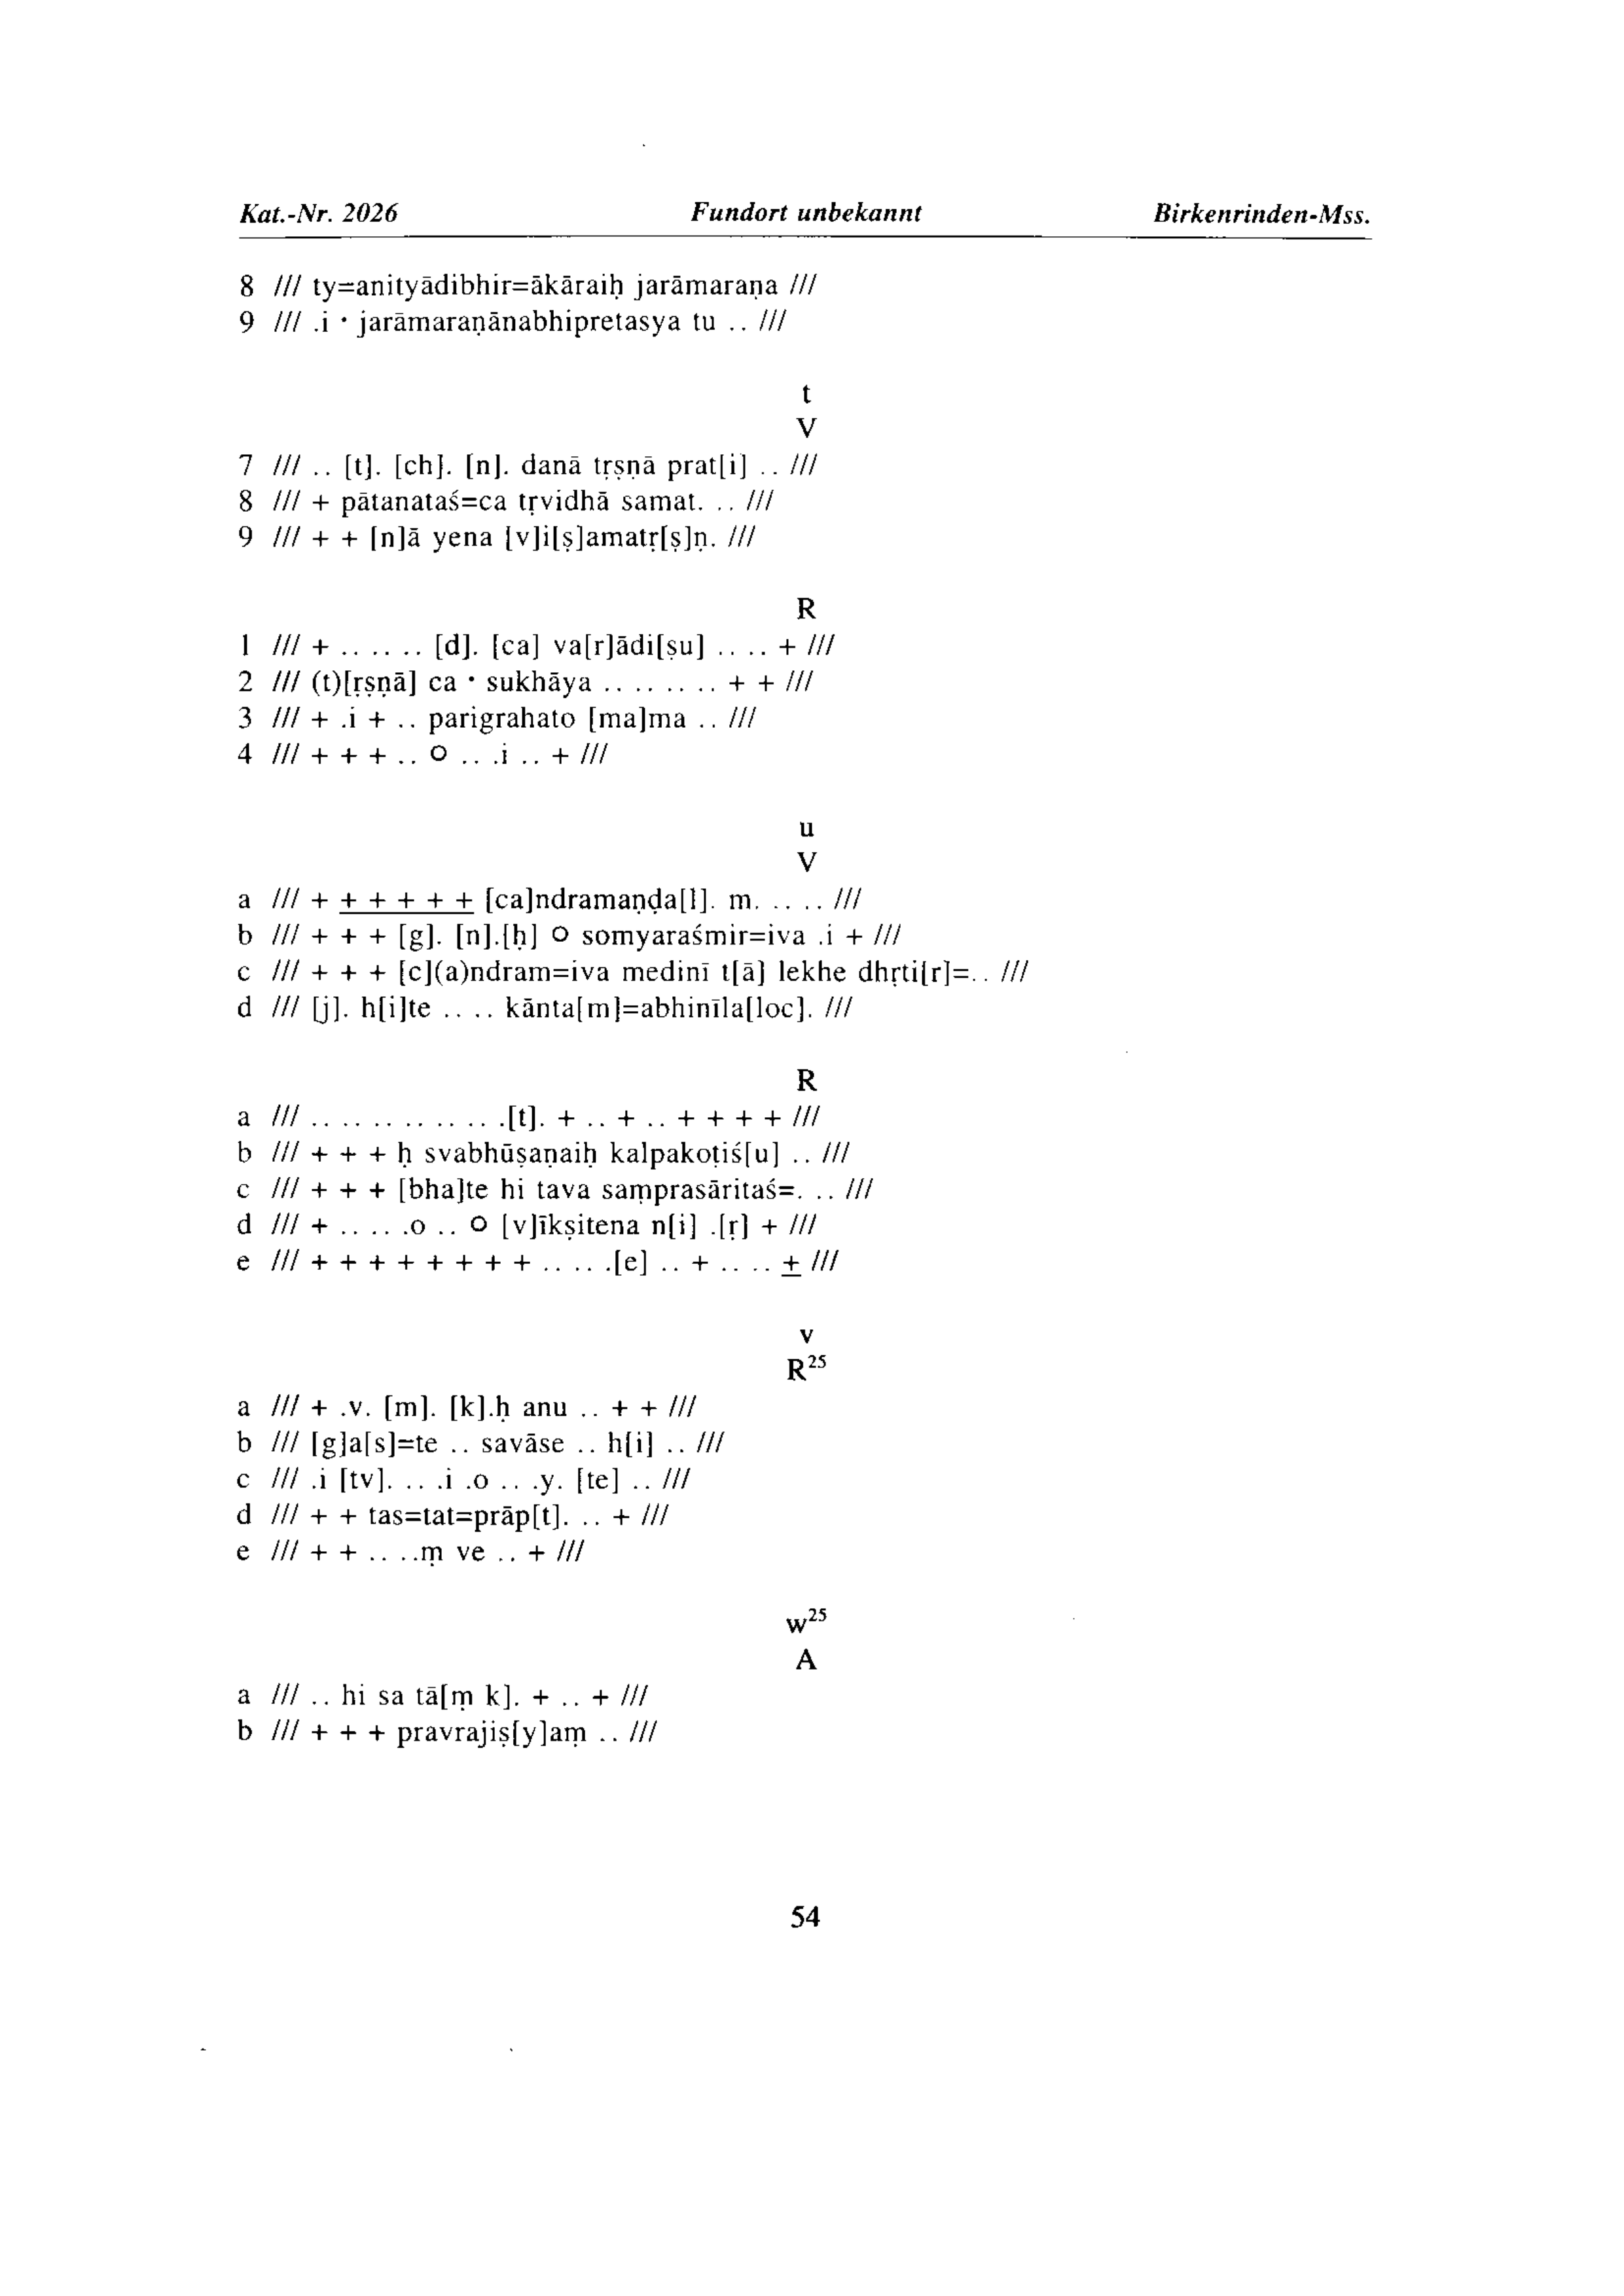 Kat.-Nr. 2026 Fundort unbekannt Birkenrinden-Mss.
8 /// ty=anityādibhir=ākāraiḥ jarāmaraṇa ///
9 /// .i • jarāmaraṇānabhipretasya tu .. ///
t
V
7 /// .. [t]. [ch]. [n]. danā tṛṣṇā prat[i] .. ///
8 /// + pātanataś=ca tṛvidhā samat. .. ///
9 /// + + [n]ā yena [v]i[ṣ]amatṛ[ṣ]ṇ. ///
R
1 /// + .. .. .. [d]. [ca] va[r]ādi[ṣu] .. .. + ///
2 /// (t)[ṛṣṇā] ca • sukhāya .. .. .. .. + + ///
3 /// + .i + .. parigrahato [ma]ma .. ///
4 /// + + + .. ○ .. .i .. + ///
u
V
a /// + + + + + + [ca]ndramaṇḍa[l]. m. .. .. ///
b /// + + + [g]. [n].[ḥ] ○ somyaraśmir=iva .i + ///
c /// + + + [c](a)ndram=iva medinī t[ā] lekhe dhṛti[r]=.. ///
d /// [j]. h[i]te .. .. kānta[m]=abhinīla[loc]. ///
R
a /// .. .. .. .. .. .. .[t]. + .. + .. + + + + ///
b /// + + + ḥ svabhūṣaṇaiḥ kalpakoṭiś[u] .. ///
c /// + + + [bha]te hi tava saṃprasāritaś=. .. ///
d /// + .. .. .o .. ○ [v]īkṣitena n[i] .[ṛ] + ///
e /// + + + + + + + + .. .. .[e] .. + .. .. + ///
v
R²⁵
a /// + .v. [m]. [k].ḥ anu .. + + ///
b /// [g]a[s]=te .. savāse .. h[i] .. ///
c /// .i [tv]. .. .i .o .. .y. [te] .. ///
d /// + + tas=tat=prāp[t]. .. + ///
e /// + + .. ..ṃ ve .. + ///
w²⁵
A
a /// .. hi sa tā[ṃ k]. + .. + ///
b /// + + + pravrajiṣ[y]aṃ .. ///
54